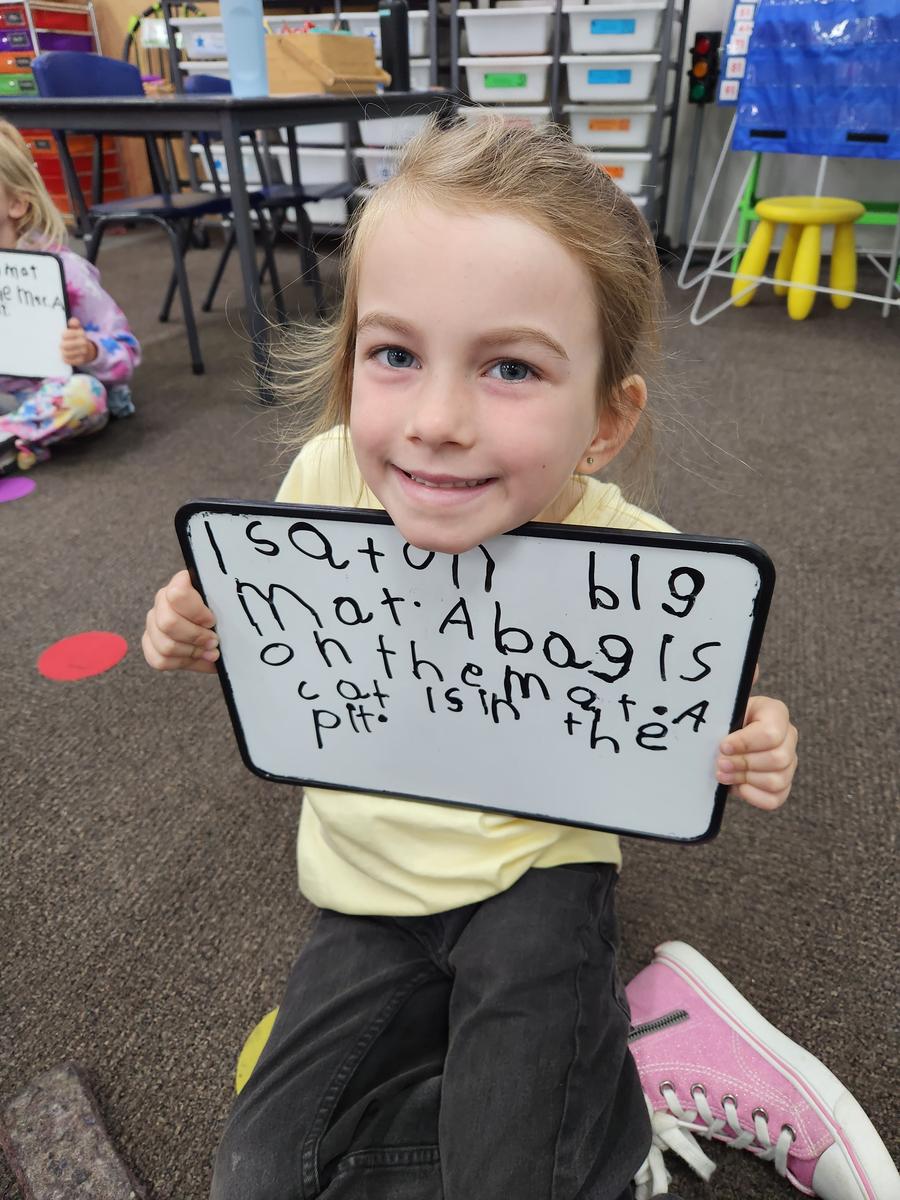 I sat on big
mat. A bag is
on the mat. A
cat is in the
pit.
mat